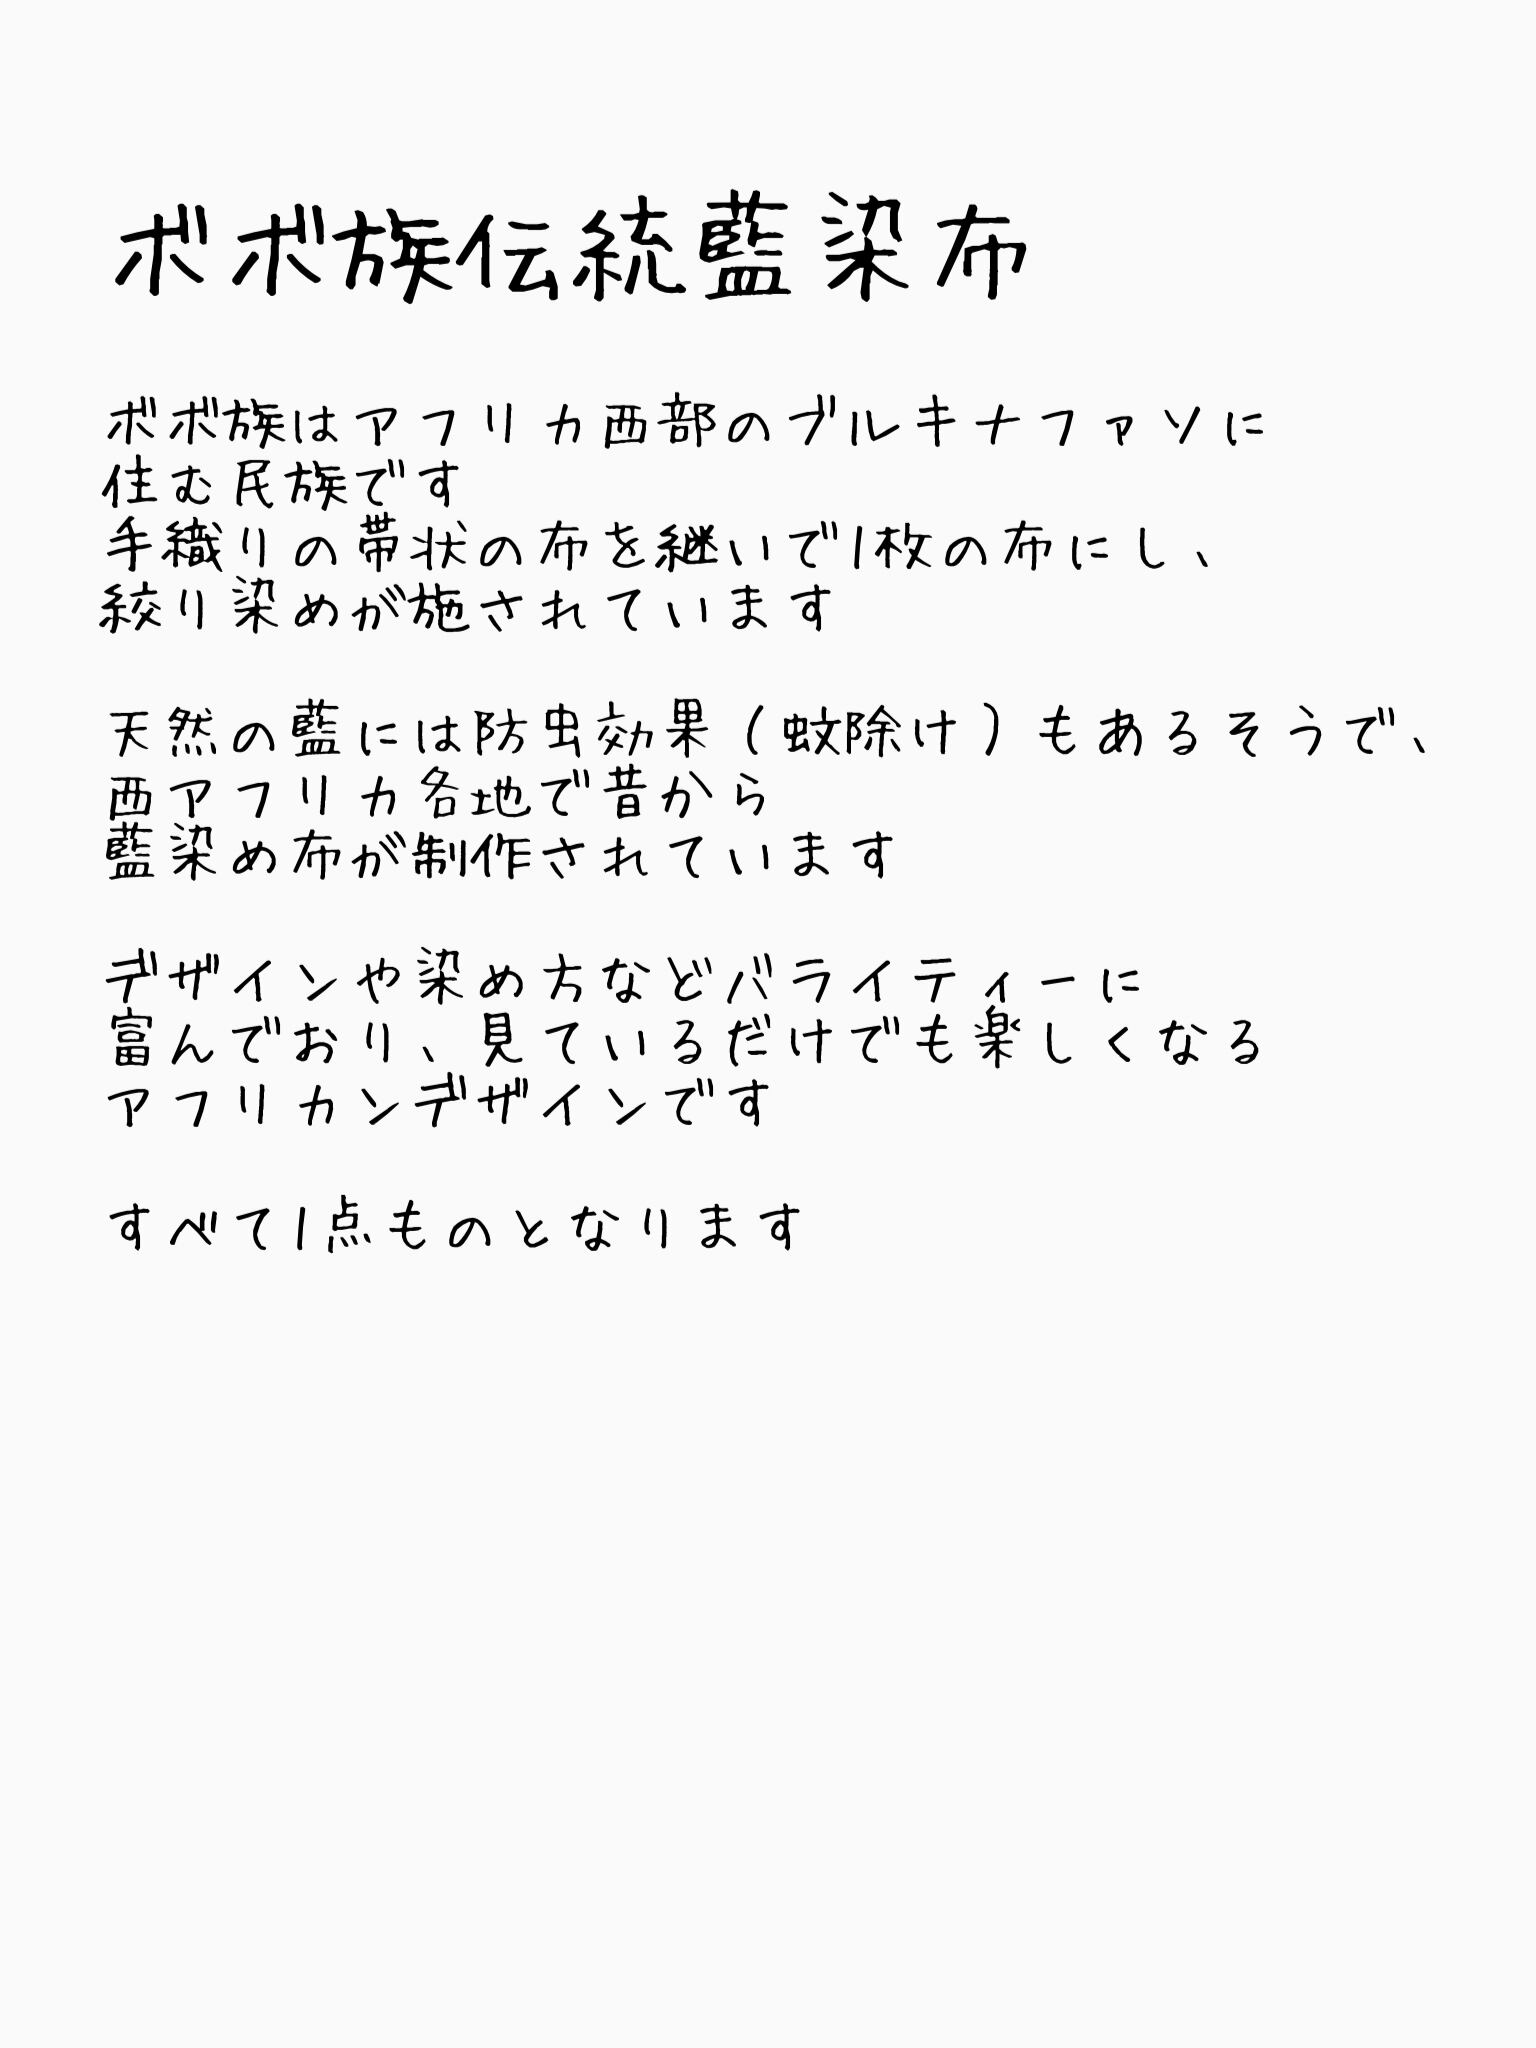 ボボ族伝統藍染布
ボボ族はアフリカ西部のブルキナファソに
住む民族です
手織りの帯状の布を継いで1枚の布にし、
絞り染めが施されています
天然の藍には防虫効果（蚊除け）もあるそうで、
西アフリカ各地で昔から
藍染め布が制作されています
デザインや染め方などバライティーに
富んでおり、見ているだけでも楽しくなる
アフリカンデザインです
すべて1点ものとなります